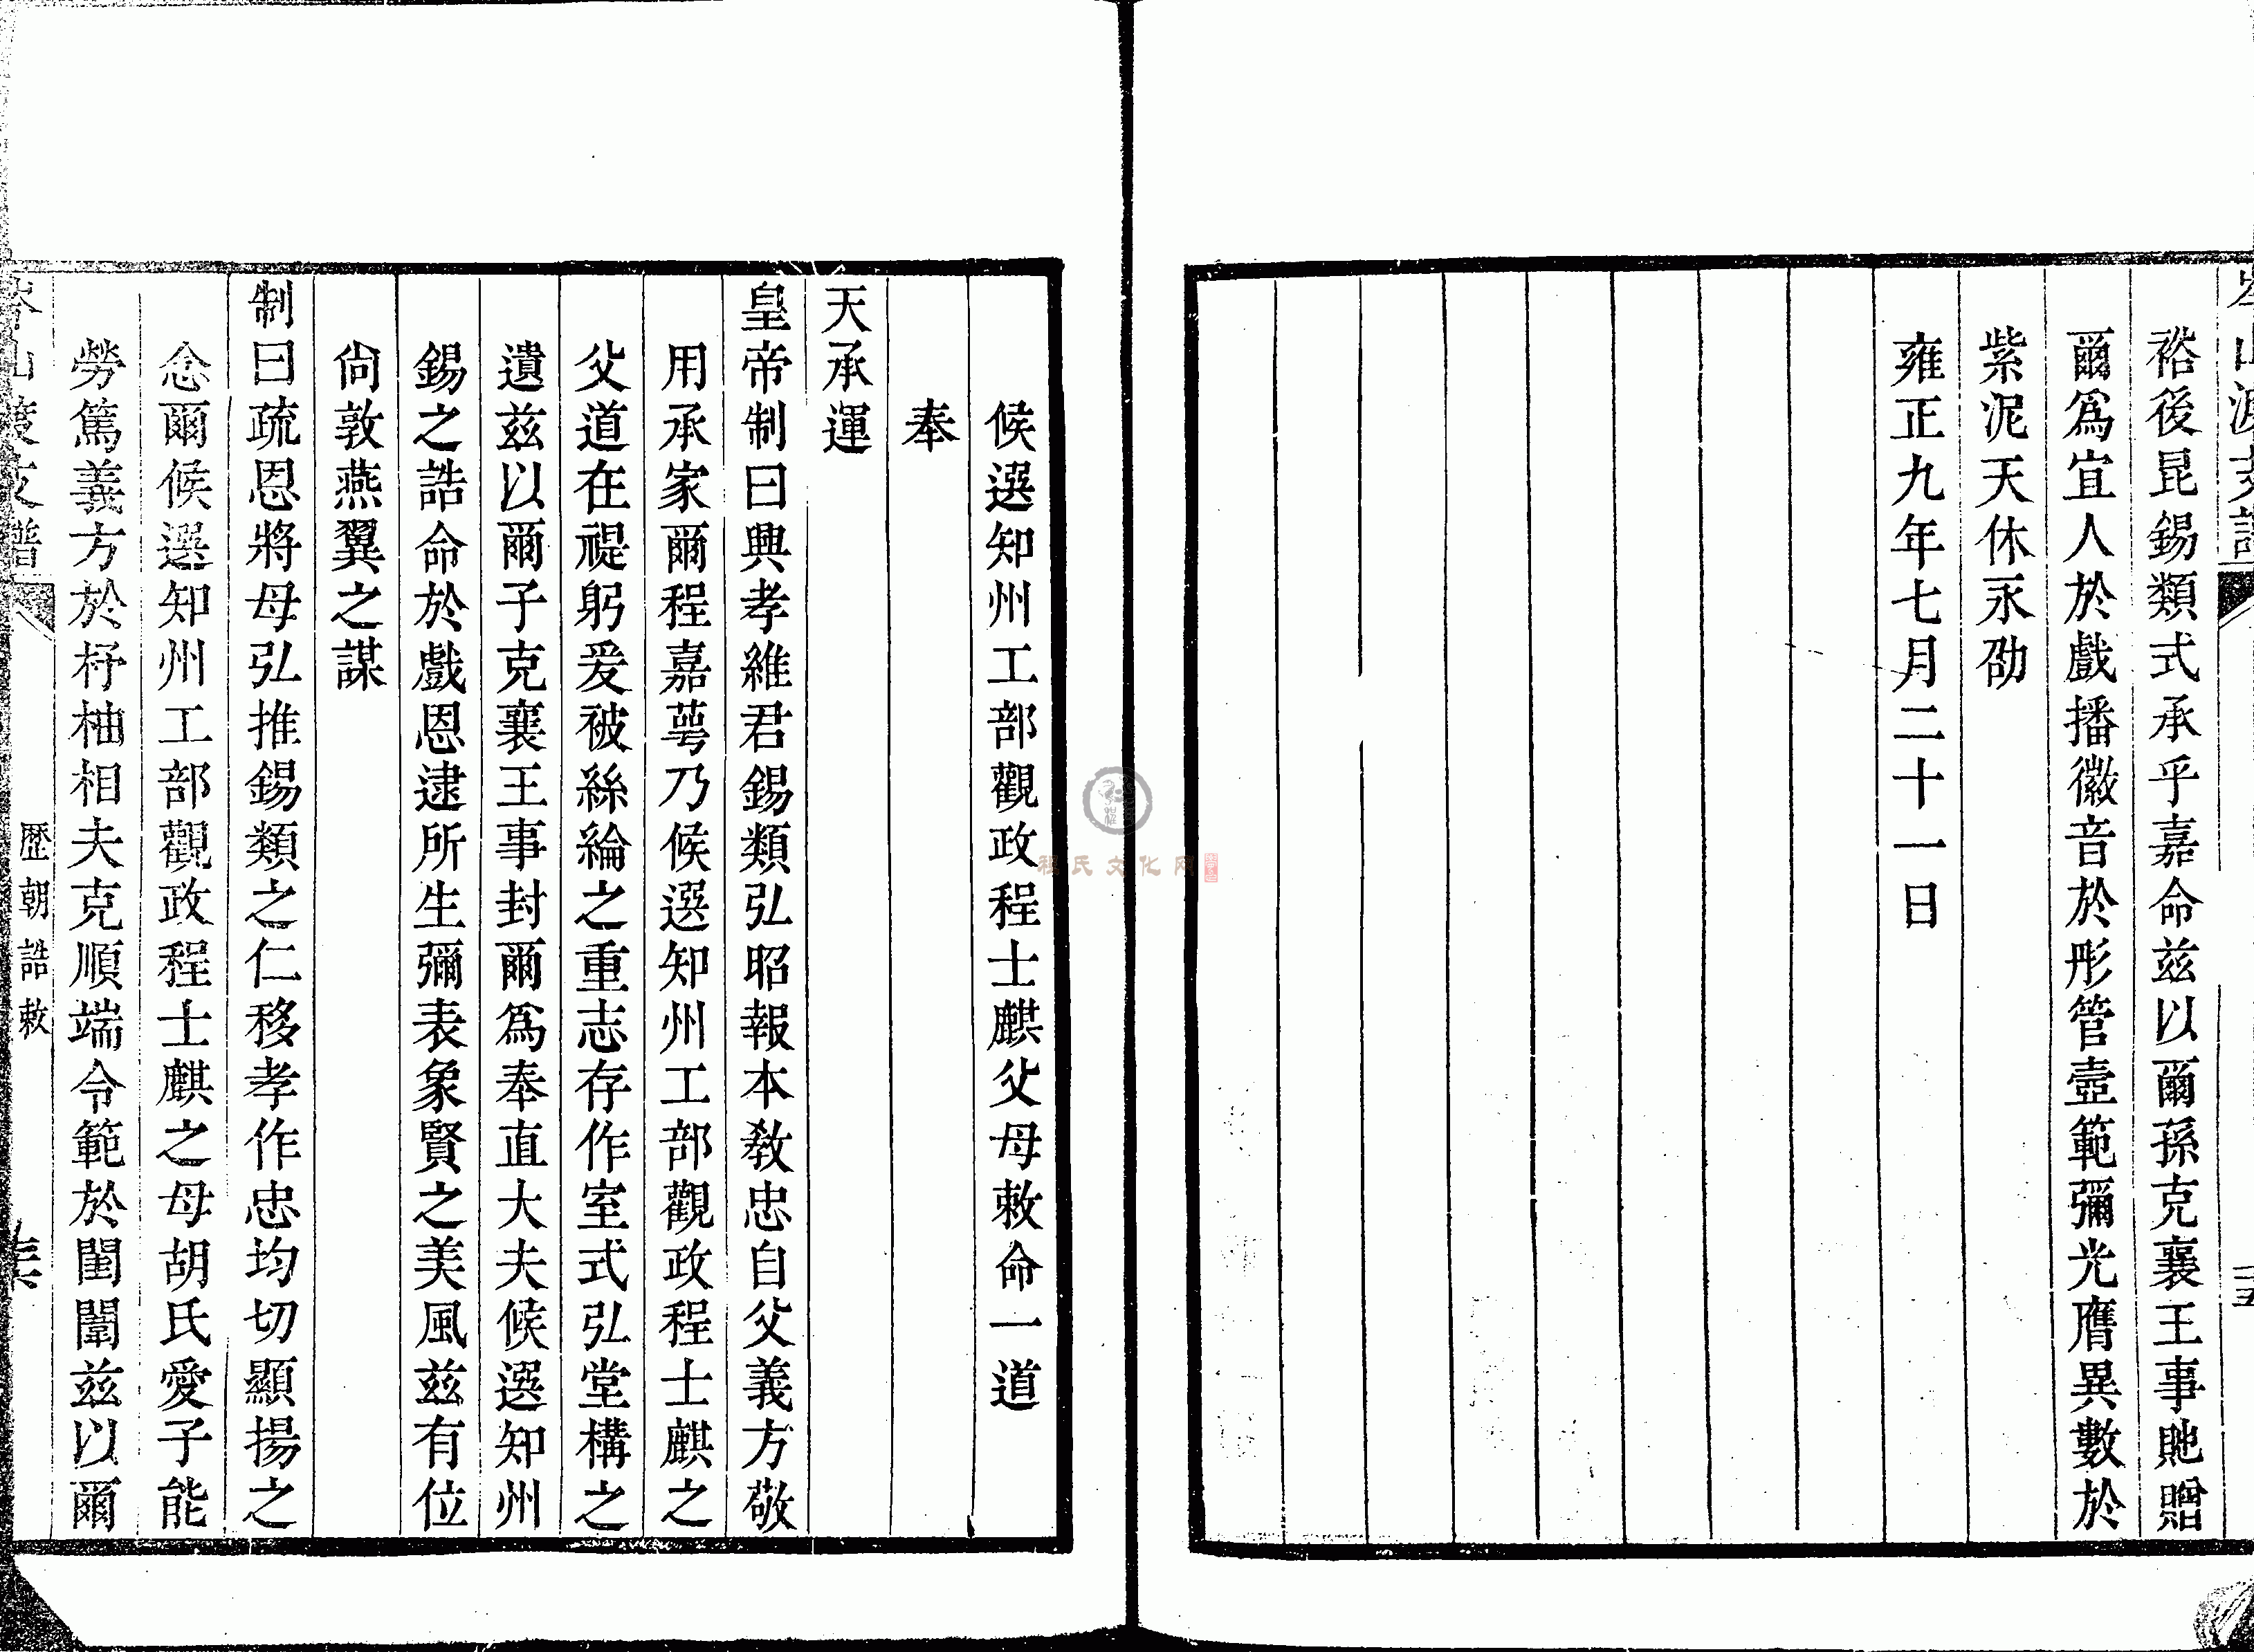 裕後昆錫類式承乎嘉命茲以爾孫克襄王事貤贈
爾爲宜人於戲播徽音於彤管壼範彌光膺異數於
紫泥天休永劭
雍正九年七月二十一日
候選知州工部觀政程士麒父母敕命一道
奉
天承運
皇帝制曰興孝維君錫類弘昭報本教忠自父義方敬
用承家爾程嘉萼乃候選知州工部觀政程士麒之
父道在禔躬爰被絲綸之重志存作室式弘堂構之
遺茲以爾子克襄王事封爾爲奉直大夫候選知州
錫之誥命於戲恩逮所生彌表象賢之美風茲有位
尙敦燕翼之謀
制曰疏恩將母弘推錫類之仁移孝作忠均切顯揚之
念爾候選知州工部觀政程士麒之母胡氏愛子能
勞篤義方於杼柚相夫克順端令範於閨闈茲以爾
岑山渡支譜
歷朝誥敕
程氏文化网